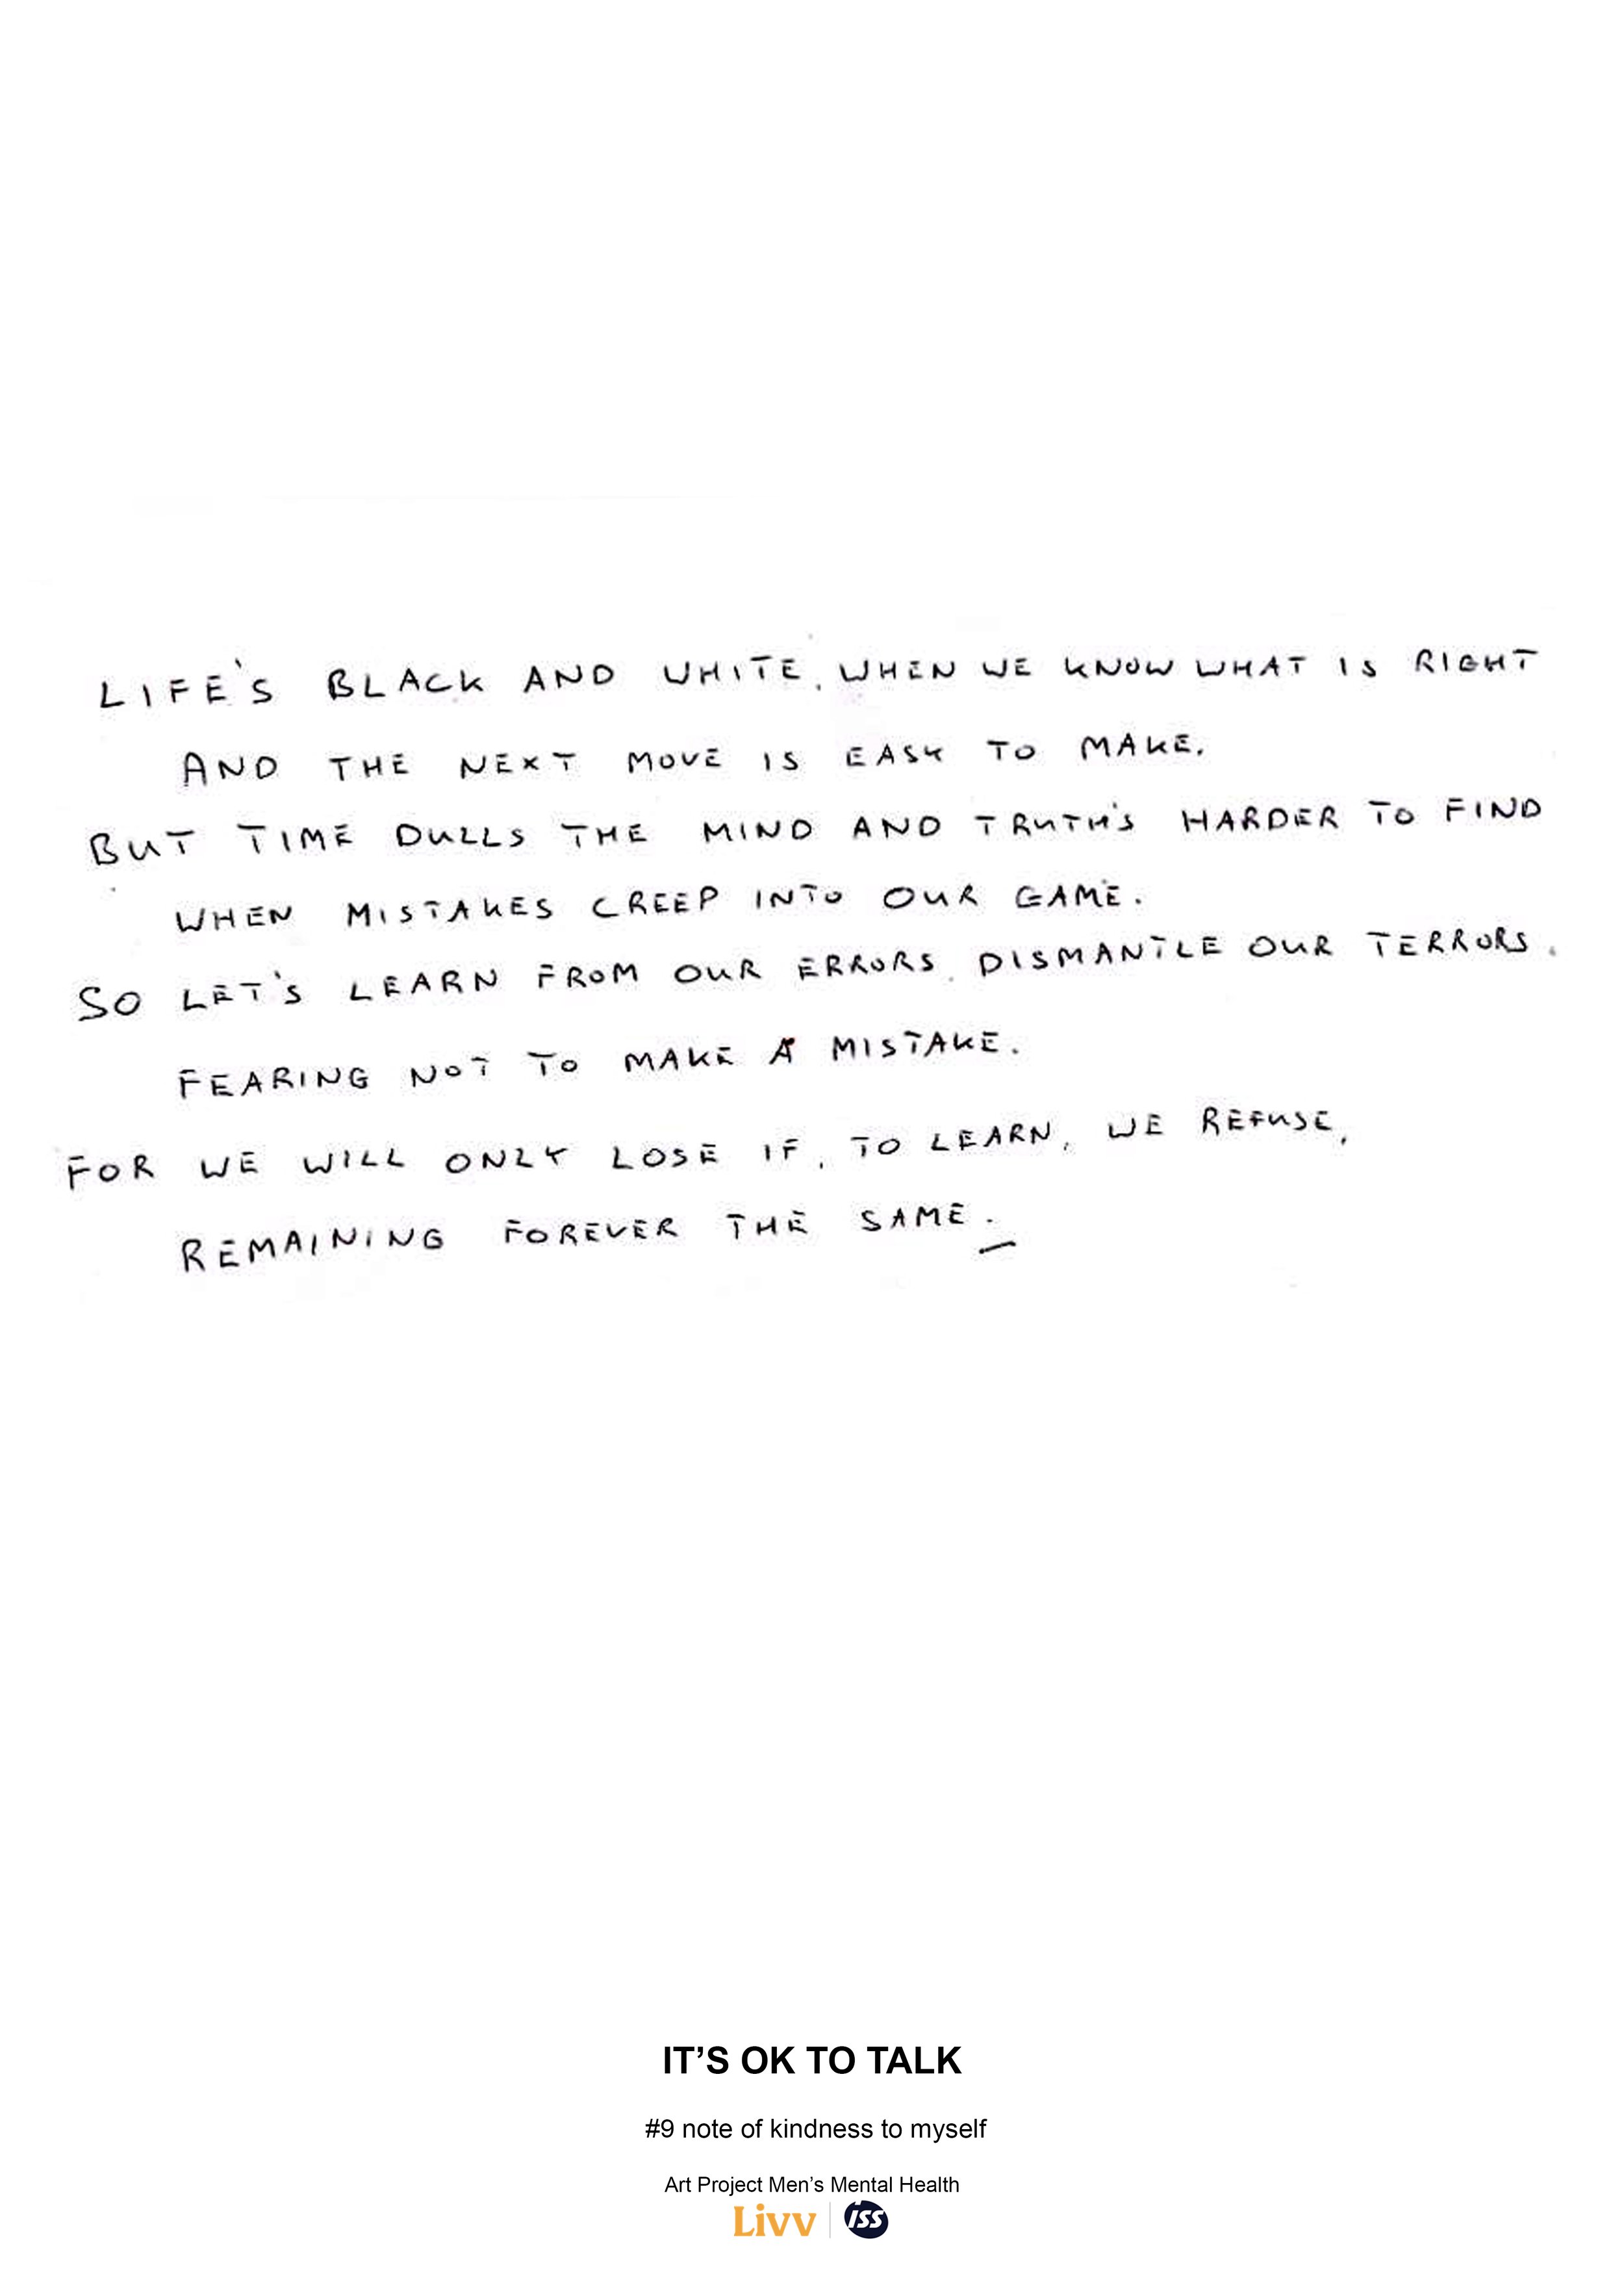 LIFE'S BLACK AND WHITE, WHEN WE KNOW WHAT IS RIGHT
AND THE NEXT MOVE IS EASY TO MAKE.
BUT TIME DULLS THE MIND AND TRUTH'S HARDER TO FIND
WHEN MISTAKES CREEP INTO OUR GAME.
SO LET'S LEARN FROM OUR ERRORS, DISMANTLE OUR TERRORS.
FEARING NOT TO MAKE A MISTAKE.
FOR WE WILL ONLY LOSE IF, TO LEARN, WE REFUSE,
REMAINING FOREVER THE SAME.
IT'S OK TO TALK
#9 note of kindness to myself
Art Project Men's Mental Health
Livv | ISS